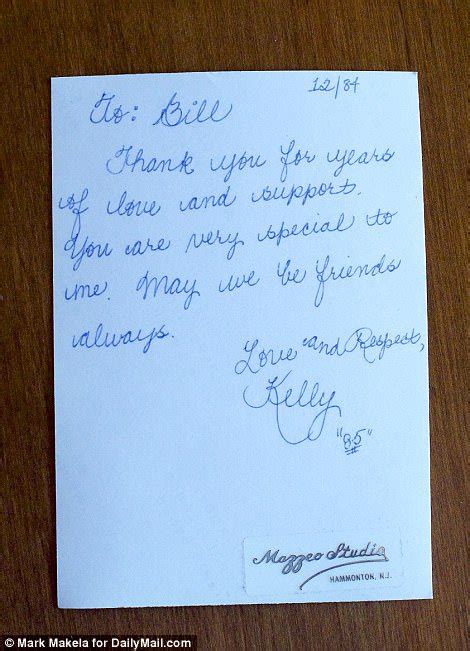 12/84
To: Bill
Thank you for years
of love and support.
You are very special to
me. May we be friends
always.
Love and Respect,
Kelly
"85"
Mazzeo Studio
HAMMONTON, N.J.
© Mark Makela for DailyMail.com